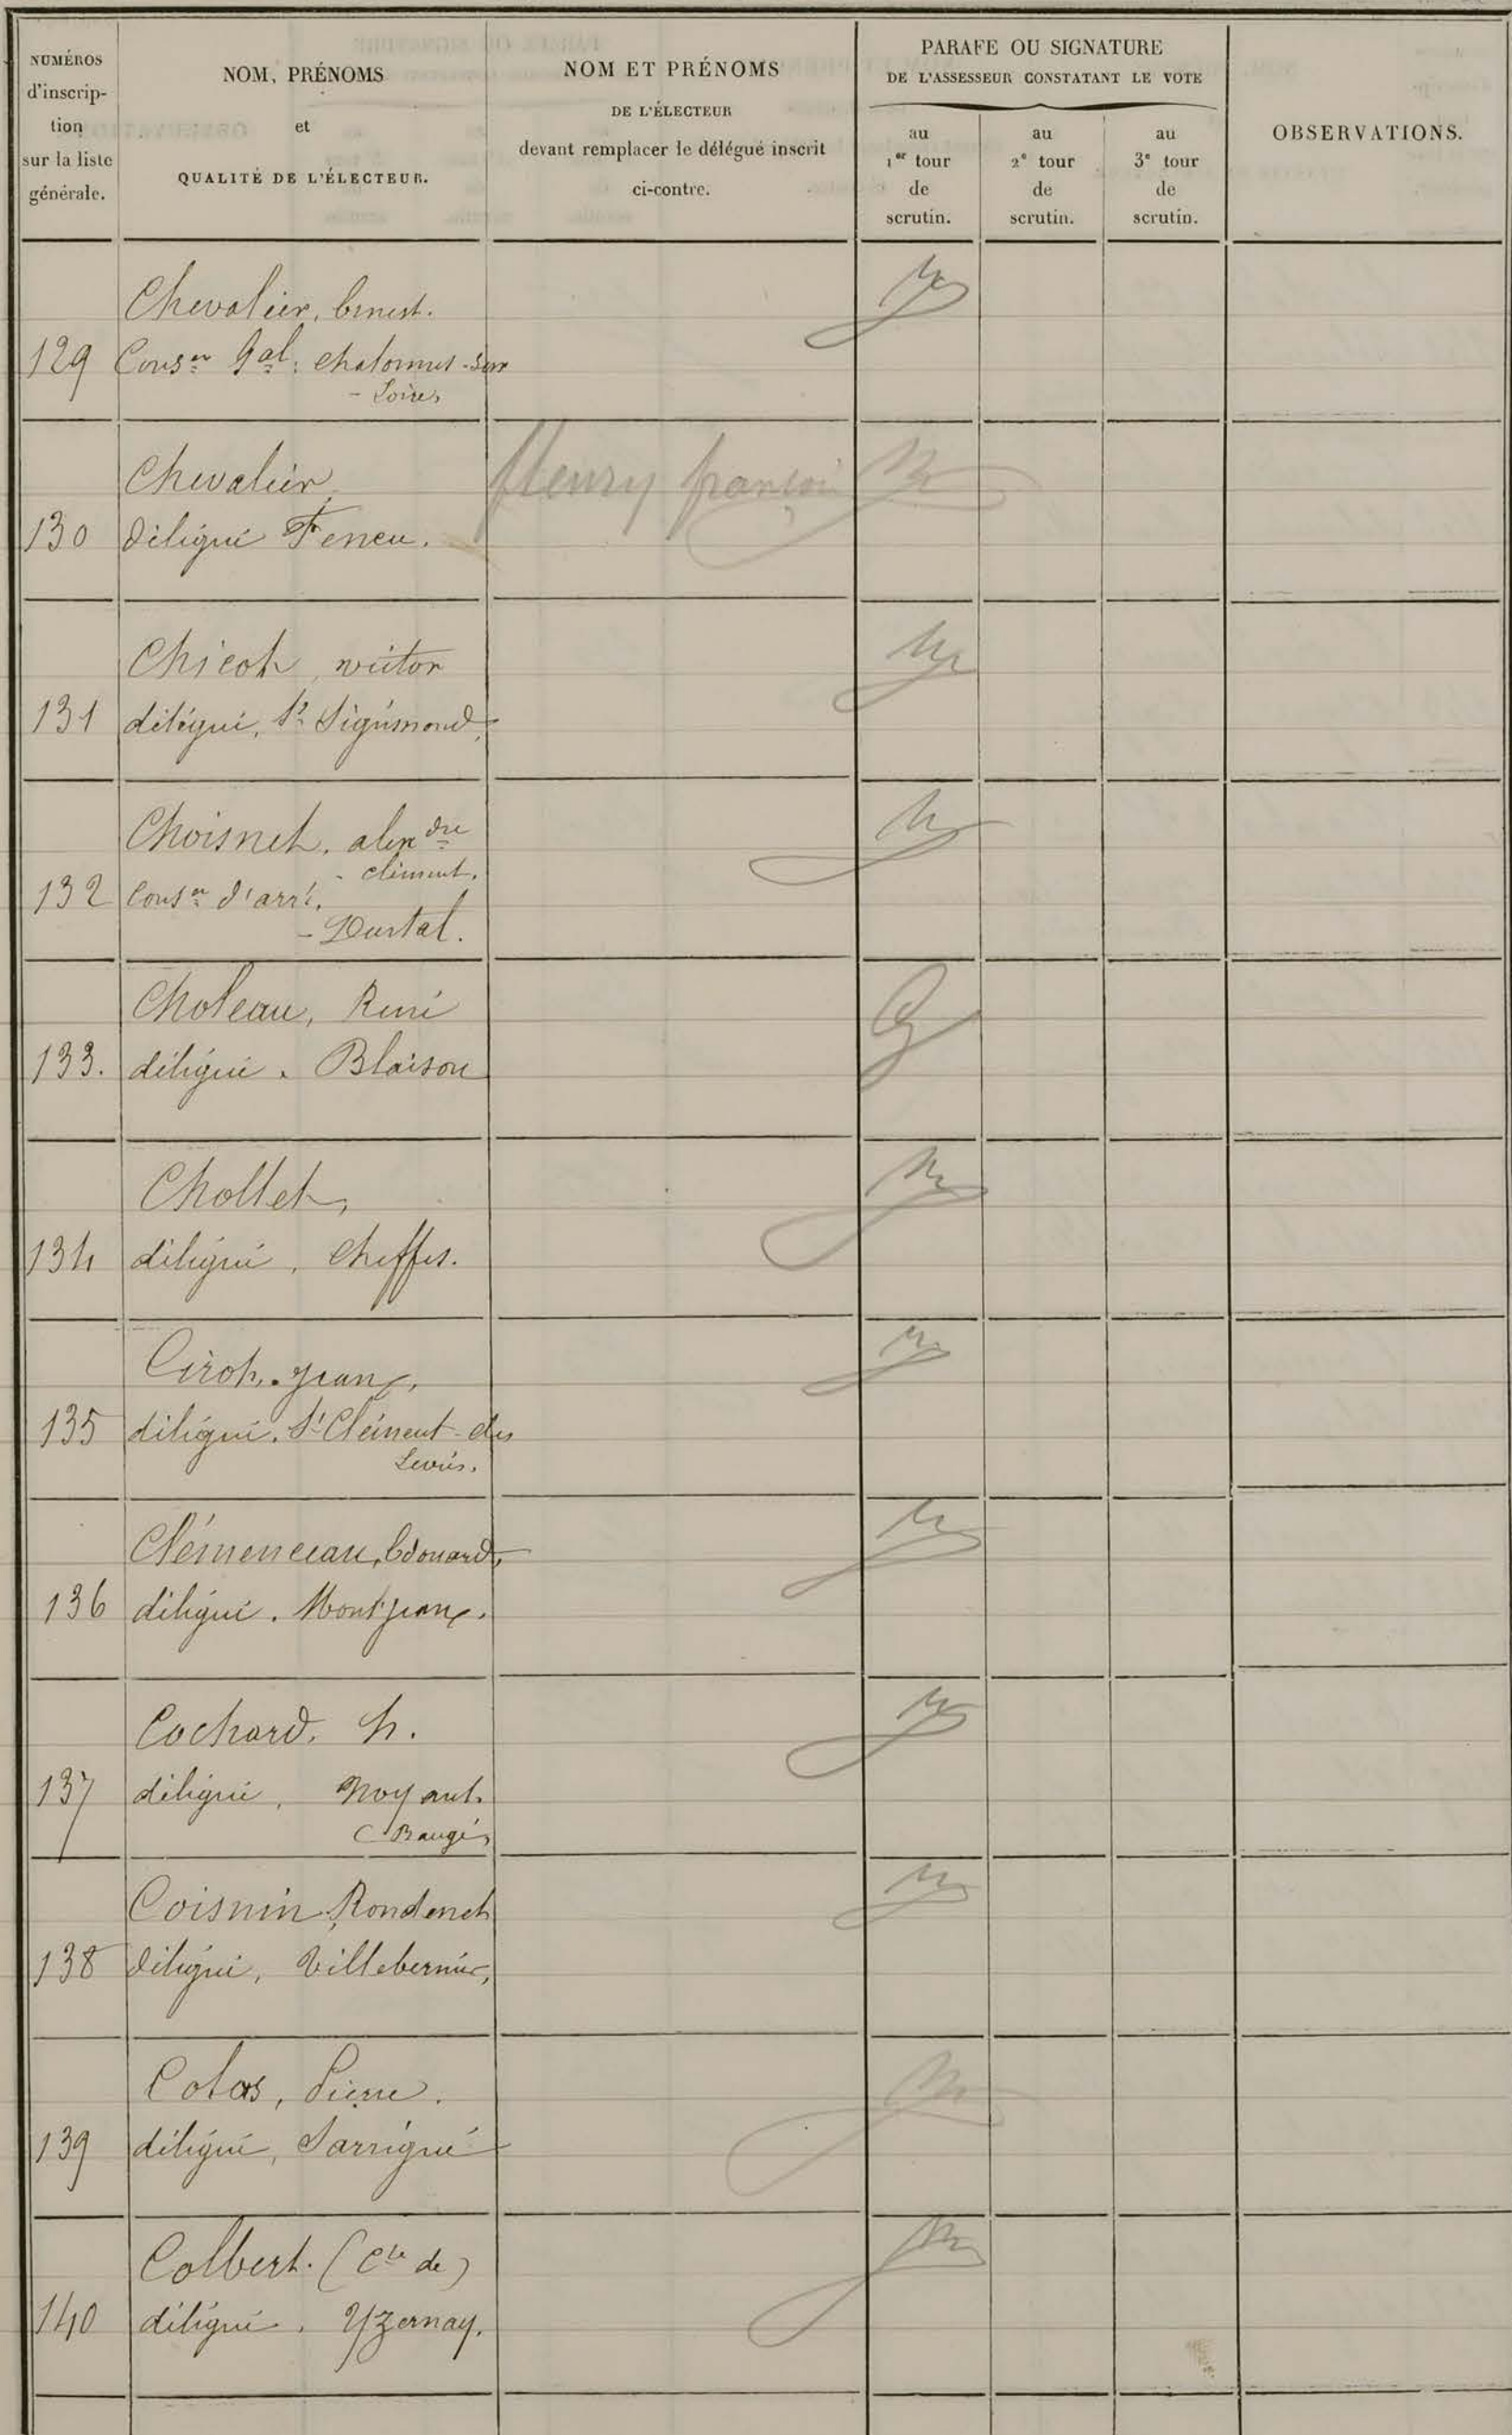 NUMÉROS
d'inscrip-
tion
sur la liste
générale.
NOM, PRÉNOMS
et
QUALITÉ DE L'ÉLECTEUR.
NOM ET PRÉNOMS
DE L'ÉLECTEUR
devant remplacer le délégué inscrit
ci-contre.
PARAFE OU SIGNATURE
DE L'ASSESSEUR CONSTATANT LE VOTE
au
1er tour
de
scrutin.
au
2e tour
de
scrutin.
au
3e tour
de
scrutin.
OBSERVATIONS.
Chevalier, Ernest.
129 Conser Gal. Chalonnes-sur
- Loire,
Chevalier, fleury françois
130 délégué Feneu.
Chicot, victor
131 délégué, St Sigismond,
Choisnet, alexdre
- clément.
132 Conser d'arrt.
- Durtal.
Choleau, René
133. délégué. Blaison
Chollet,
134 délégué, Cheffes.
Cirot, Jean,
135 délégué. St Clément-des
Levées.
Clémenceau, Edouard,
136 délégué. Montjean.
Cochard, h.
137 délégué, Noyant.
Baugé,
Coisnin, Rondenet
138 délégué, Villebernier,
Colas, Pierre.
139 délégué, Sarrigné
Colbert. (Cte de)
140 délégué. Yzernay.